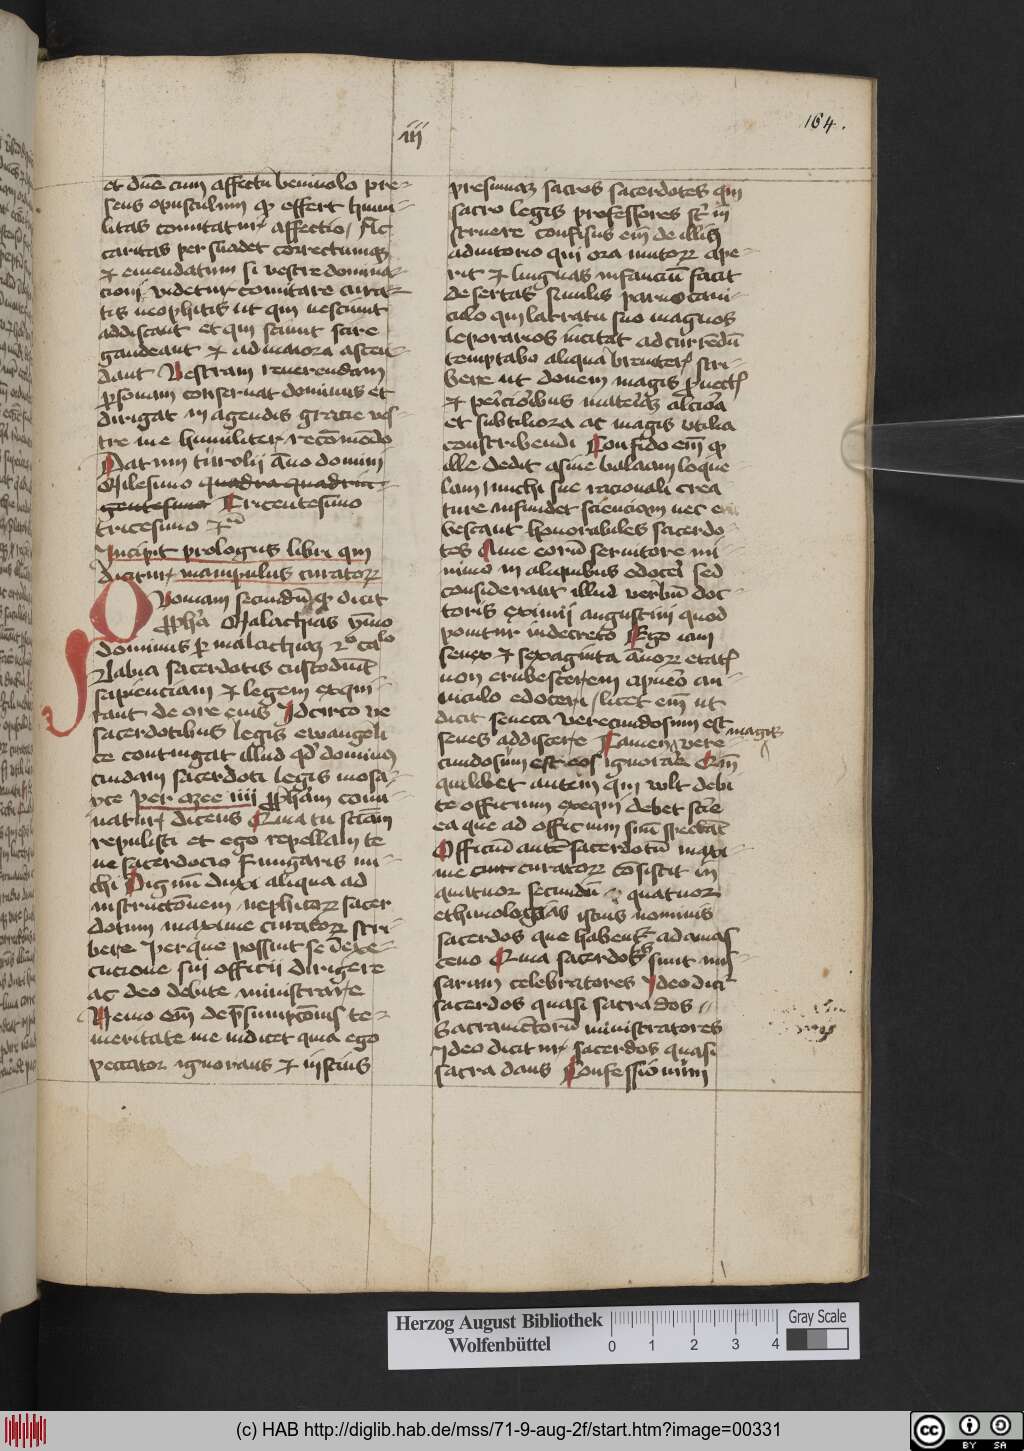 164.
iii
et dūe cum affectu beniuolo pre-
sens opusculum qͥ offert humi-
litas comitatur affectio Ac
caritas per suadet correctumqꝫ
⁊ emendatum si vestre domina-
cioni videtur comitare cura-
tis neophitis ut qui nesciunt
addiscant et qui sciunt scire
gaudeant ⁊ ad maiora ascen-
dant Vestram reuerendam
ꝑsonam conseruat dominus et
dirigat in agendis gracie ves-
tre me humiliter recōmēdo
Datum turolii āno domini
Milesimo quadra quadrin-
gentesimo Tricentesīmo
tricesimo
Incipit prologus libri qui
dicitur manipulus curatoꝝ
Quoniam secundū qͩ dicit
ꝓpha Malachias ymo
dominus ꝑ malachiaꝫ
Labia sacerdotis custodiūt
sapienciam ⁊ legem exqui-
rant de ore eius Idcirco ne
sacerdotibus legis ewangeli
ce contingat illud qd dominus
cuidam sacerdoti legis mosa-
yce per ozee iiii ꝓpham comi-
natur dicens Quia tu sciam
repulisti et ego repellam te
ne sacerdocio fungaris mi-
chi Dignū duxi aliqua ad
instructōnem nephitoꝝ sacer
dotum maxime curatoꝝ scri-
bere per que possint se in exe-
cucione sui officii dirigere
ac deo debite ministrare
Nemo em de psumpcōnis te-
meritate me iudicet quia ego
peccator ignorans ⁊ inscius
presumaꝫ sacros sacerdotes qui
sacro legis professores st in
struere confisus em de illius
adiutorio qui ora mutoꝝ ape-
rit ⁊ linguas infanciū facit
desertas similis paruo cani-
culo qui latratu suo magnos
leporarios incitat ad currendū
temptabo aliqua breuiter scri-
bere ut donem magis
et subtiliora ac magis vtilia
conscribendi Confido em qͥ
ille dedit asine balaam loque-
lam iumchi sue racionali crea
ture infundet scienciam nec
vescant honorabiles sacerdo-
tes Siue eorū seruitore mi-
nimo in aliquibus edoceri sed
considerant illud verbū doc-
toris eximii augustini quod
ponitur in decreto Ego iam
senex ⁊ sexaginta ānoꝝ etatis
non erubescerem
niculo edoceri licet em ut
dicit seneca verecundosum est
senes addiscere Tamen vere magis
cundosum est eos ignorare Cum
quilibet autem qui vult debi
te officium exequi debet scire
ea que ad officium suū spectāt
Officiū autē sacerdotū maxi-
me curatoꝝ cōsistit in
quatuor secundū quatuor
ethimologias istius nominis
sacerdos que habent ad amus
ceno Quia sacerdotes sunt mis-
sarum celebratores Ideo dicit
sacerdos quasi sacra dos
Sacramentorū ministratores
Ideo dicitur sacerdos quasi
sacra dans Confessionum
Herzog August Bibliothek
Wolfenbüttel
0 1 2 3 4
Gray Scale
(c) HAB http://diglib.hab.de/mss/71-9-aug-2f/start.htm?image=00331
cc BY SA